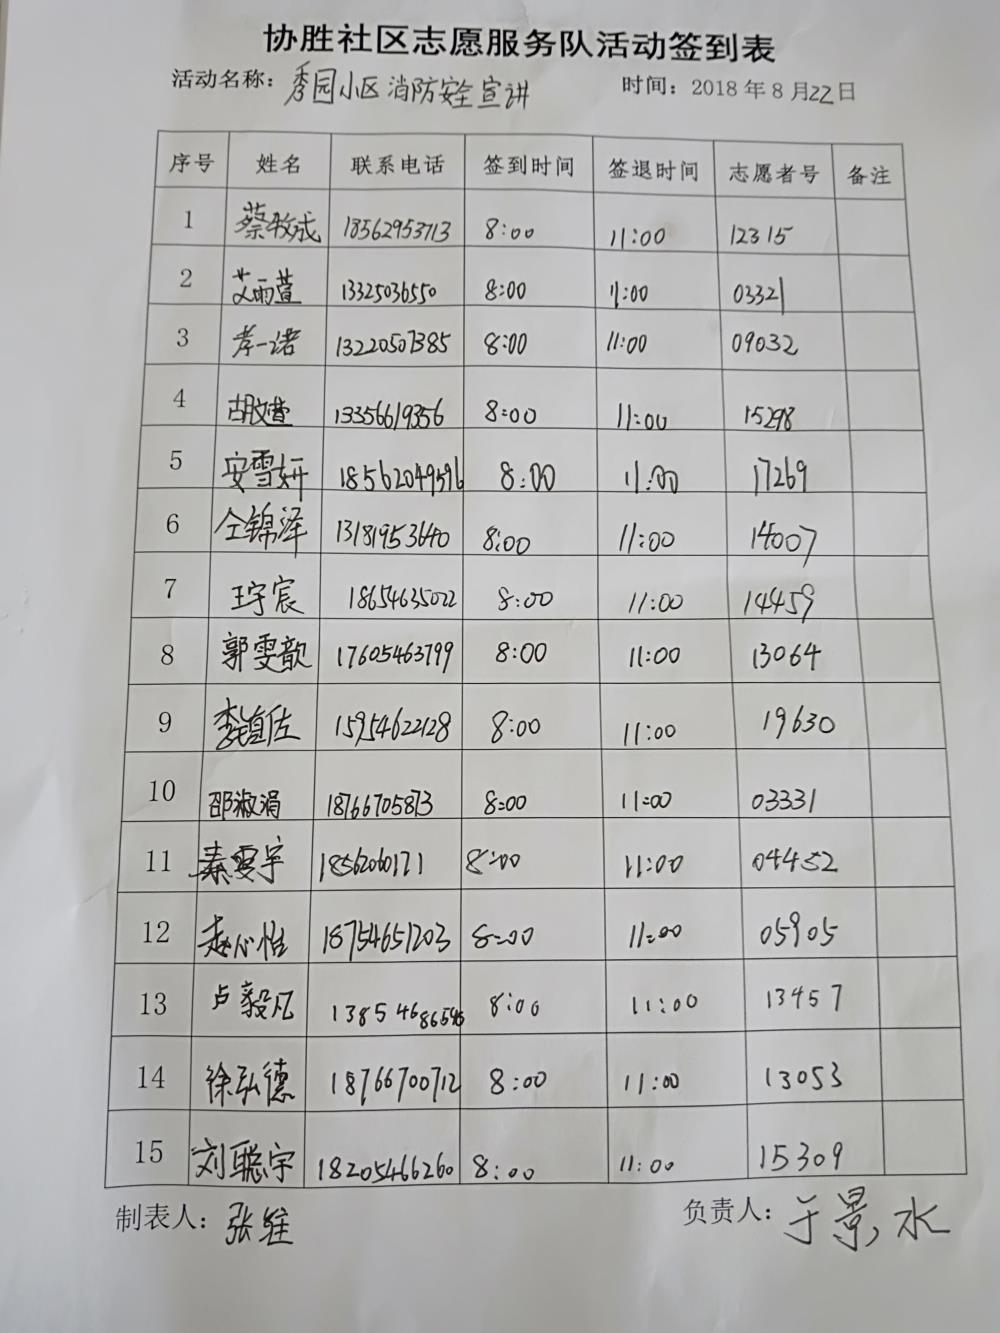 协胜社区志愿服务队活动签到表
活动名称：秀园小区消防安全宣讲 时间：2018年8月22日
序号 姓名 联系电话 签到时间 签退时间 志愿者号 备注
1 蔡牧成 18562953713 8:00 11:00 12315
2 艾雨萱 13325036550 8:00 11:00 03321
3 李一诺 13220507385 8:00 11:00 09032
4 胡文萱 13356619356 8:00 11:00 15298
5 安雪妍 18562049596 8:00 11:00 17269
6 仝锦泽 13181953640 8:00 11:00 14007
7 王宇宸 18654635022 8:00 11:00 14459
8 郭雯歆 17605463799 8:00 11:00 13064
9 李镇佐 15954622128 8:00 11:00 19630
10 邵淑涓 18766705873 8:00 11:00 03331
11 秦雯宇 18562060171 8:00 11:00 04452
12 赵心怡 18754651203 8:00 11:00 05905
13 卢毅凡 13854686596 8:00 11:00 13457
14 徐弘德 18766700712 8:00 11:00 13053
15 刘聪宇 18205466260 8:00 11:00 15309
制表人：张维 负责人：于景水